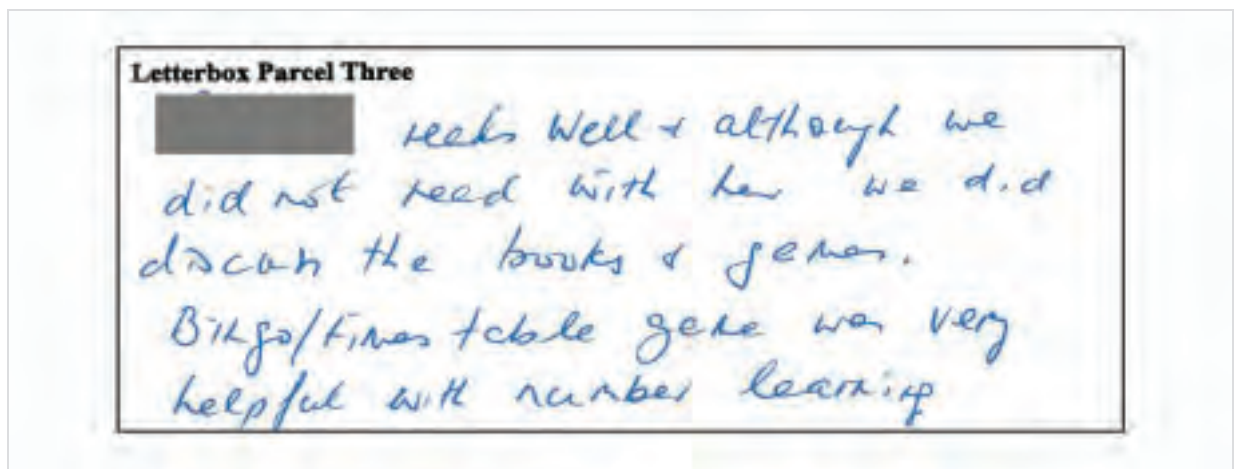 Letterbox Parcel Three
reads well & although we
did not read with her we did
discuss the books & games.
Bingo/times table game was very
helpful with number learning